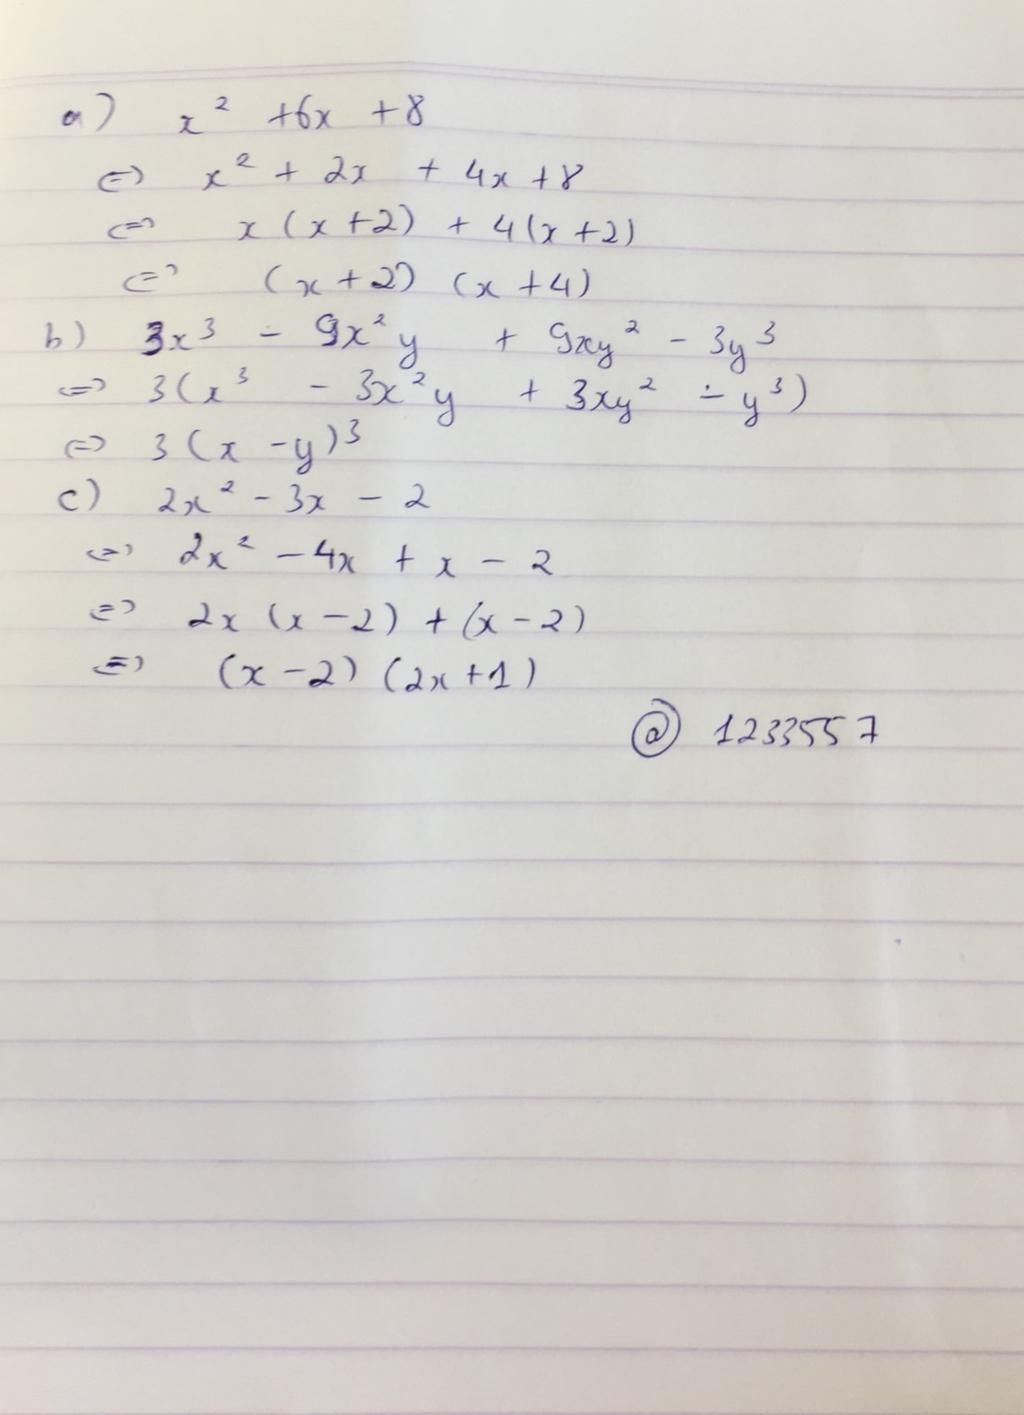 a) x² +6x +8
<=> x² + 2x + 4x +8
<=> x (x +2) + 4(x +2)
<=> (x +2) (x +4)
b) 3x³ - 9x²y + 9xy² - 3y³
<=> 3(x³ - 3x²y + 3xy² - y³)
<=> 3 (x -y)³
c) 2x² - 3x - 2
<=> 2x² - 4x + x - 2
<=> 2x (x - 2) + (x - 2)
<=> (x - 2) (2x +1)
@ 1233557